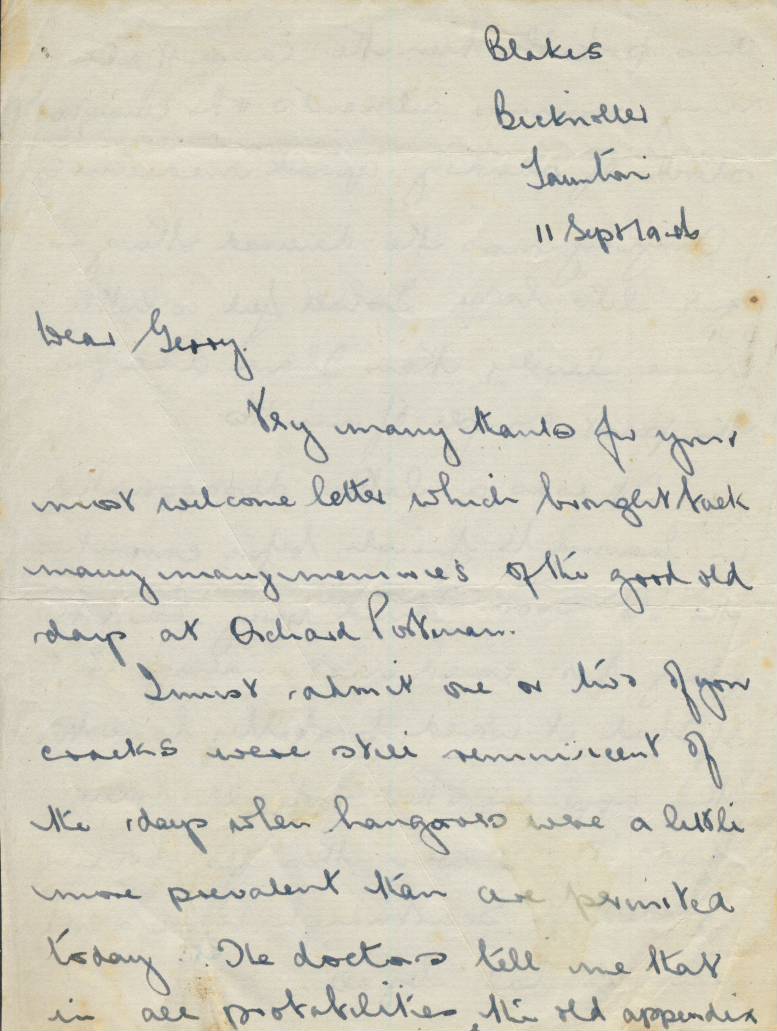 Blakes
Bicknoller
Taunton
11 Sept
Dear Gerry.
Very many thanks for your
most welcome letter which brought back
many many memories of the good old
days at Orchard Portman.
I must admit one or two of your
cracks were still reminiscent of
the days when hangovers were a little
more prevalent than are permitted
today. The doctors tell me that
in all probabilities, the old appendix